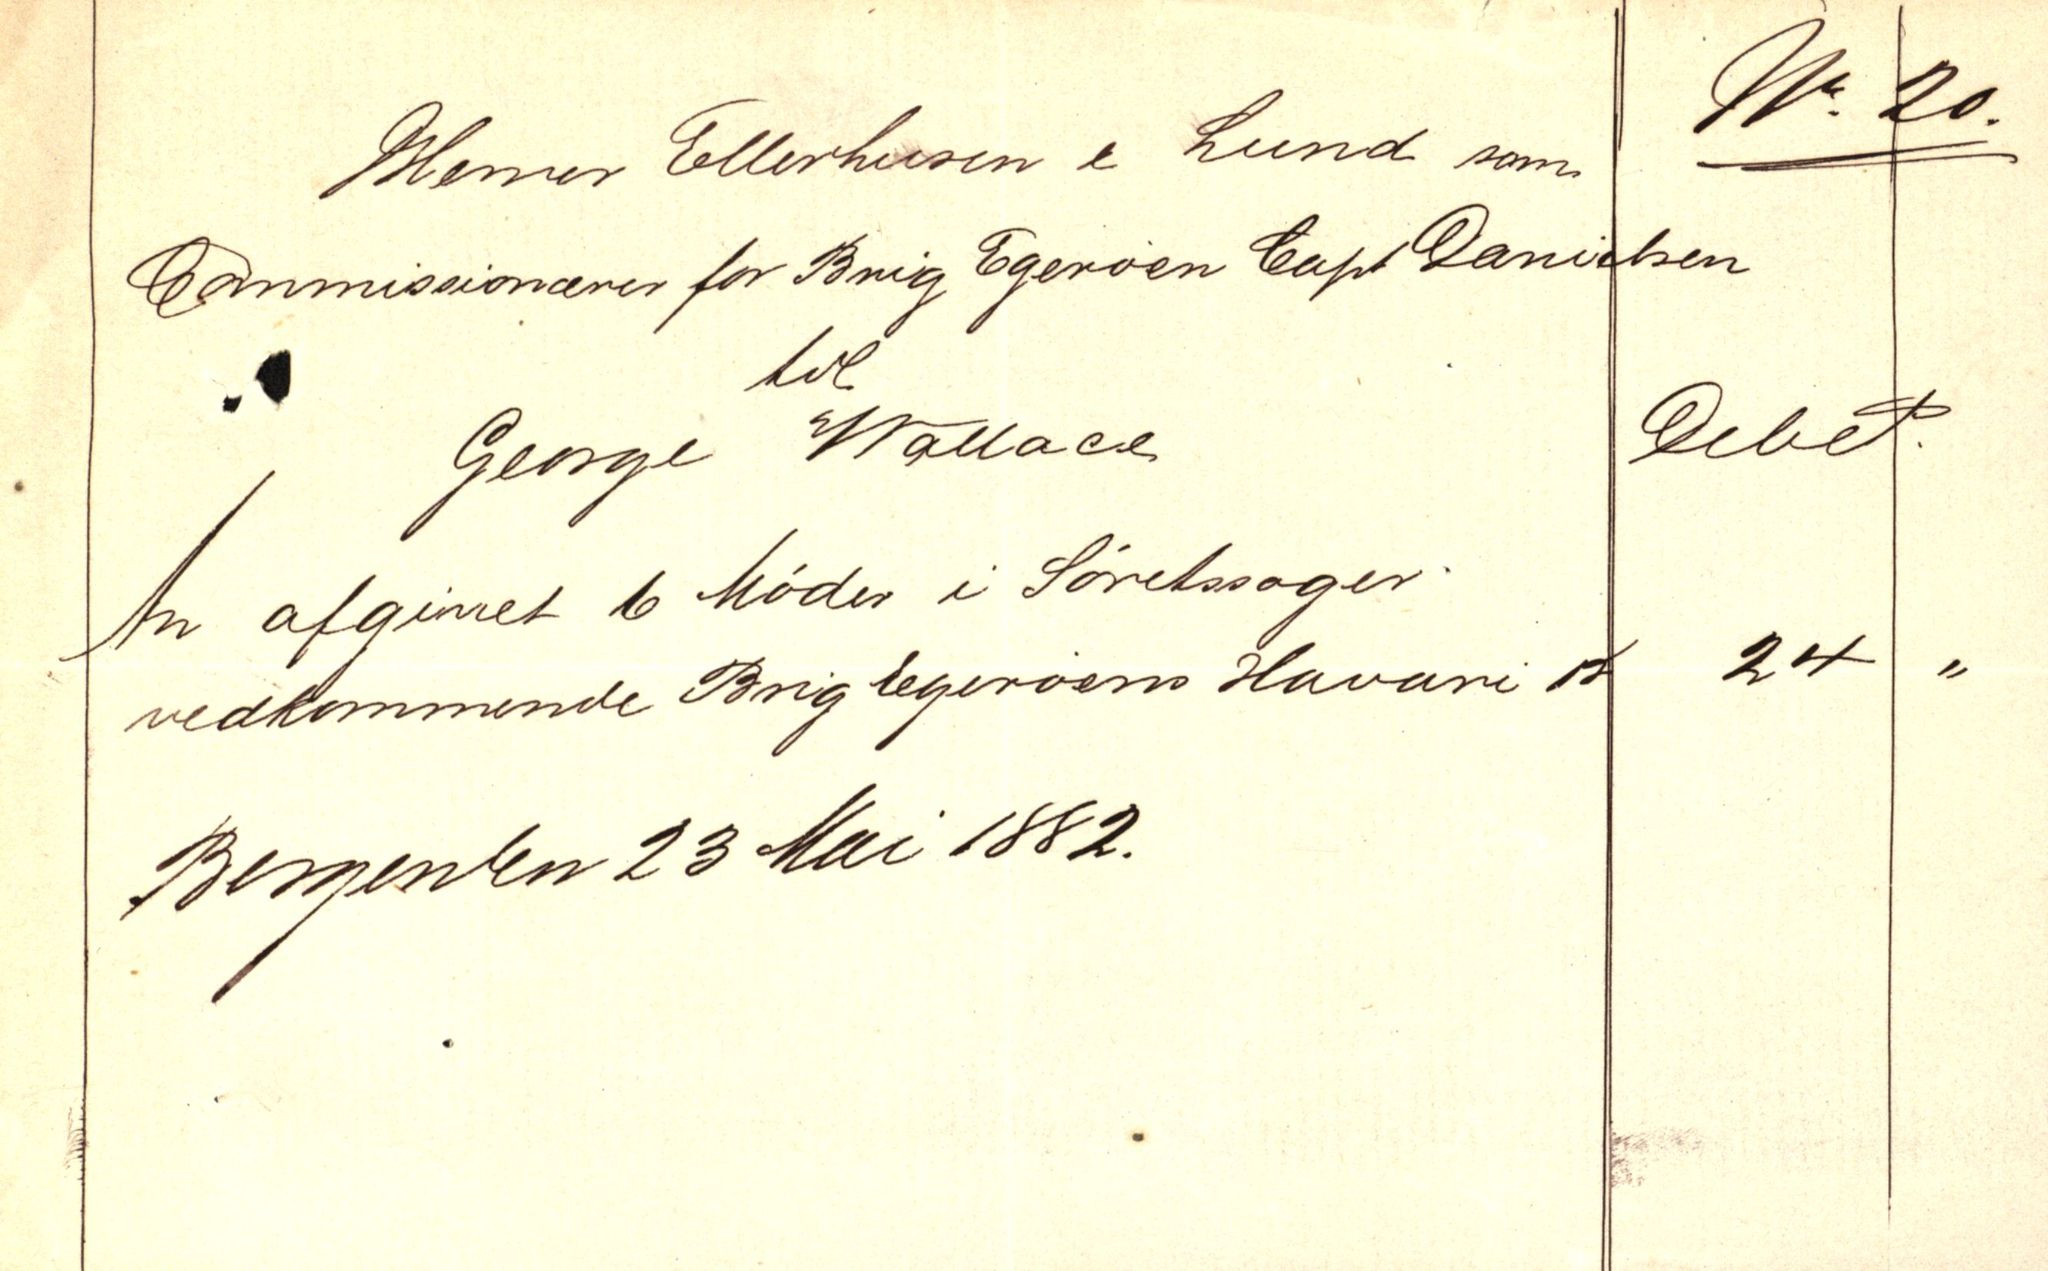 No. 20.
Herrer Ellerhusen & Lund som
Commissionærer for Brig Egerøen Capt Danielsen
til
George Wallace Debet.
An afgivet 6 Møder i Søretssager
vedkommende Brig Egerøens Havari Kr 24 "
Bergen den 23 Mai 1882.